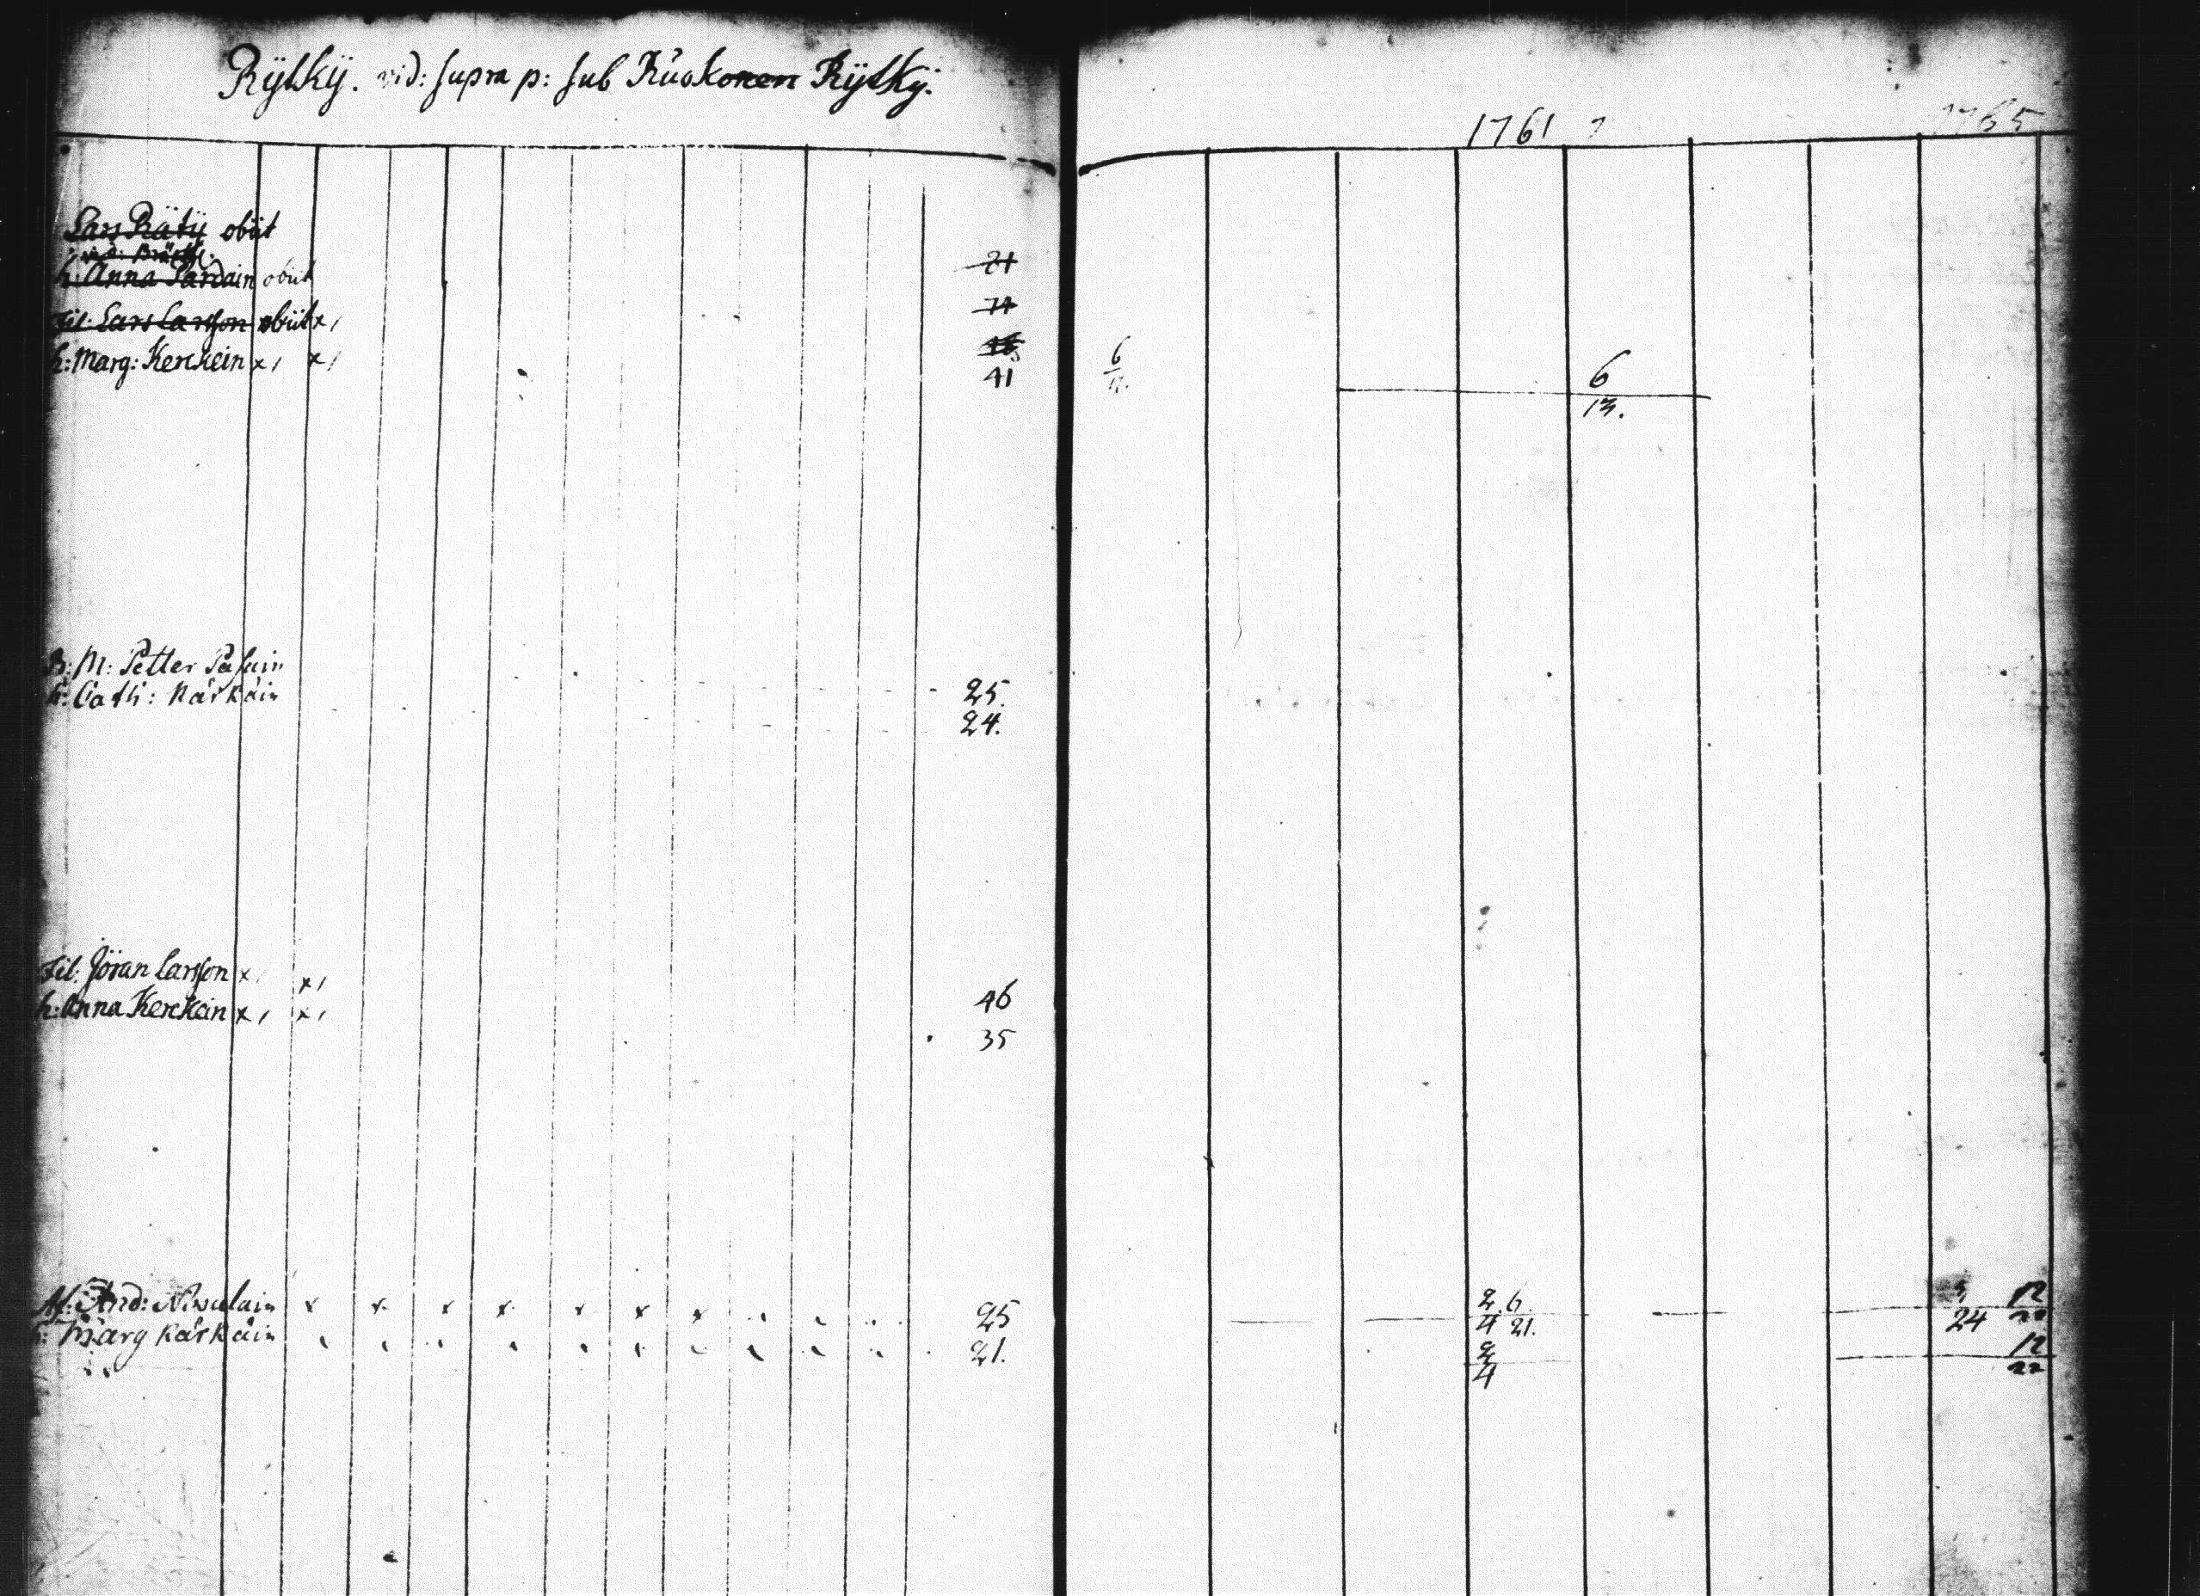 Rÿtkÿ. vid: supra p: sub Ruokonen Rÿtkÿ.
1761 1765
Lars Rätÿ obiit
vid:
h: Anna Pardain obiit
Fil. Lars Larsson obiit x,
h: Marg: Kerckein x, x,
41
6
6
13.
B: M: Petter Pasuin
h: Cath: Kärkäin
25.
24.
Fil. Jöran Larsson x, x,
h: Anna Kerckein x, x,
46
35
And: Niwalain x x x x x x x
h: Marg Kärkäin
25 2 . 6 12
4 21. 24
21. 2 12
4 22